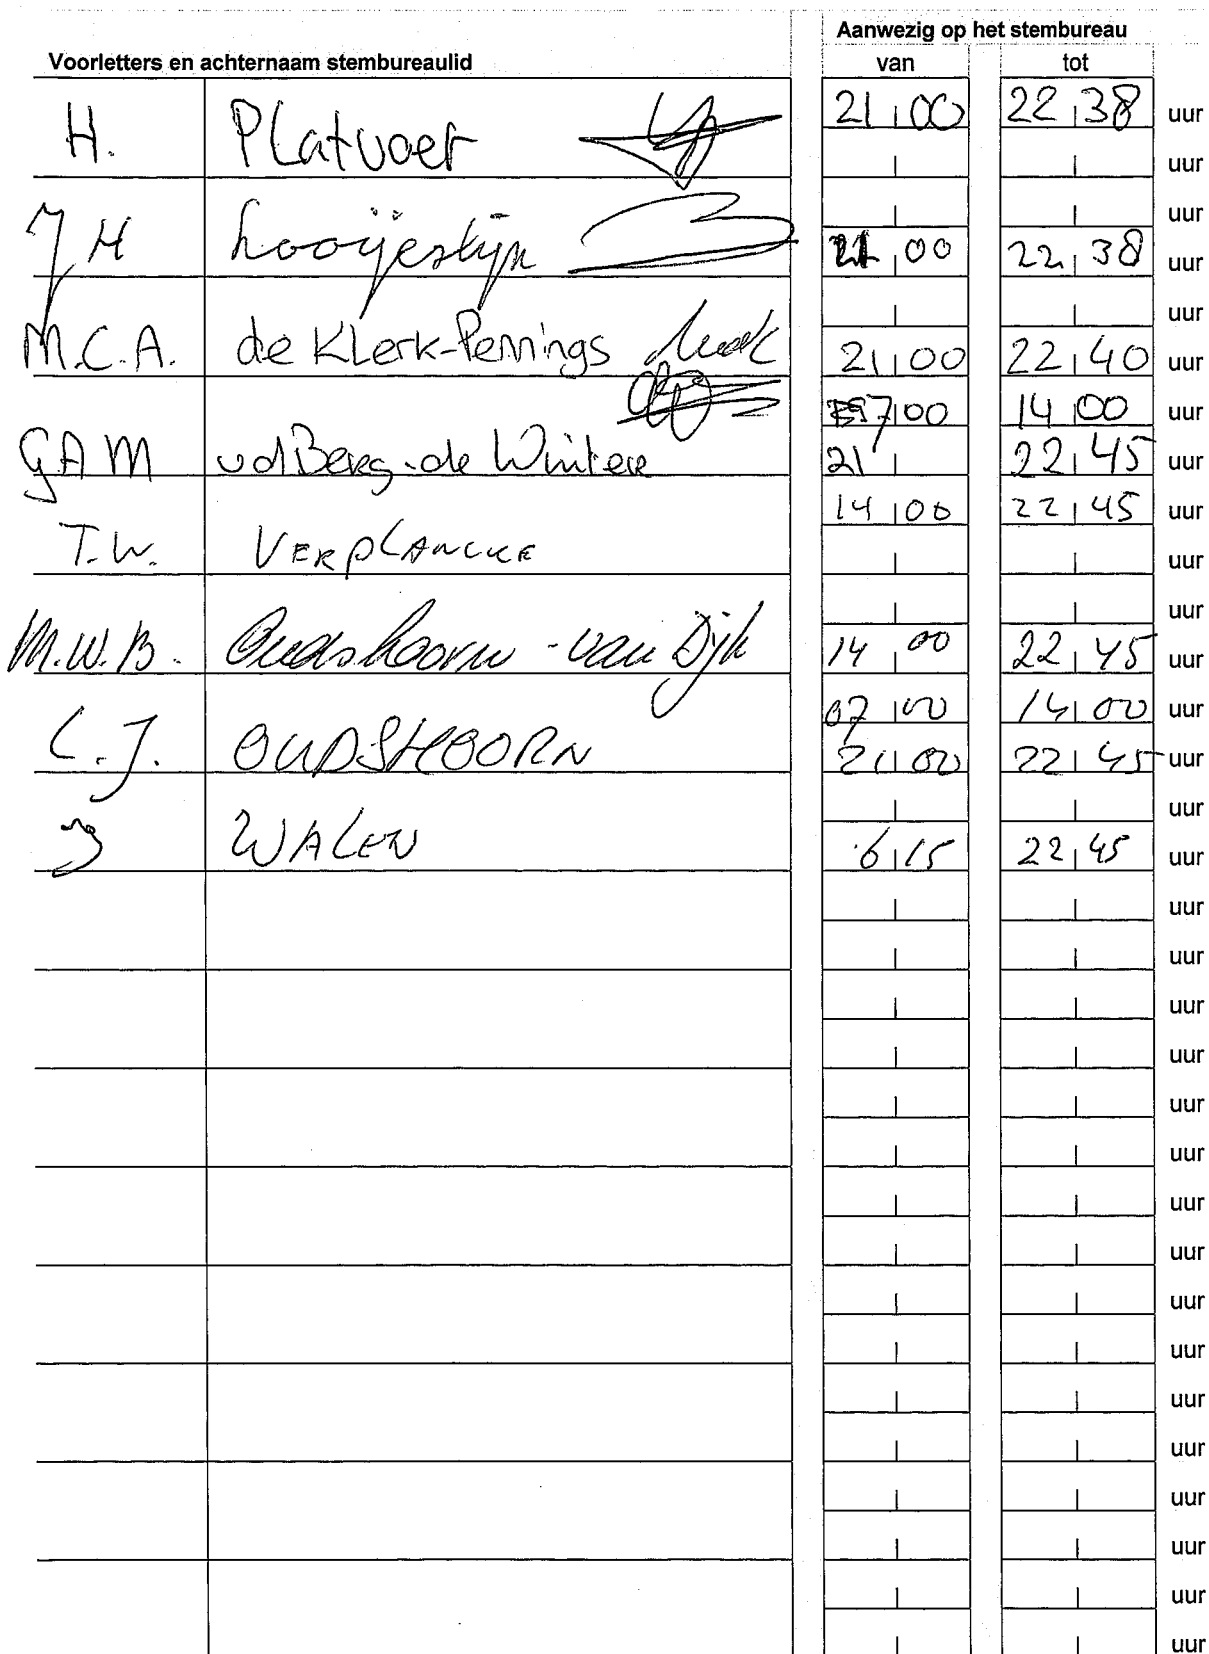 Aanwezig op het stembureau
Voorletters en achternaam stembureaulid van tot
H. Platvoet 21 00 22 38 uur
uur
uur
JH Looijestijn 21 00 22 38 uur
uur
M.C.A. de Klerk-Pennings 21 00 22 40 uur
7 00 14 00 uur
GAM vd Berg-de Winter 21 22 45 uur
14 00 22 45 uur
T.W. VERPLANCKE uur
uur
M.W.B. Oudshoorn - van Dijk 14 00 22 45 uur
07 00 14 00 uur
C.J. OUDSHOORN 21 00 22 45 uur
uur
WALEN 6 15 22 45 uur
uur
uur
uur
uur
uur
uur
uur
uur
uur
uur
uur
uur
uur
uur
uur
uur